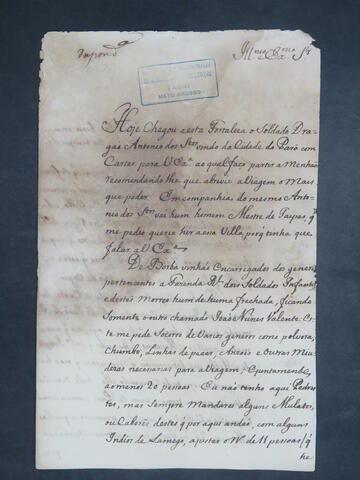 Respond.ª
Ill.mo e Ex.mo Sr
MATO GROSSO
Hoje Chegou aesta Fortaleza o Soldado Dra-
gaõ Antonio dos Stos vindo da Cidade do Pará com
Cartas para V Ex.ª ao qual faço partir a Menhãa
recomendando lhe que abrevie a Viagem o Mais
que poder. Em companhia do mesmo Anto-
nio dos Stos vai hum homem Mestre de Taipas, q
me pedio queria hir a essa Villa porq tenha que
falar a V. Ex.ª
De Borba vinhaõ Encarregados dos generos
pertencentes a Fazenda R.l dois Soldados Infantes
e destes Morreo hum de huma frechada, ficando
Somente o outro chamado Joaõ Nunes Valente. Es-
te me pede Socorro de Varios generos como polvora,
chumbo, Linhas de pescar, Anzois e Outras Miu-
dezas necesarias para a Viagem; E juntamente,
ao menos 20 pessoas. Eu naõ tenho aqui Pedestres,
mas Sempre Mandarei alguns Mulatos,
ou Cabores destes q por aqui andaõ, com alguns
Indios de Lamego, ajustar o N.º de 11 pessoas/q
he